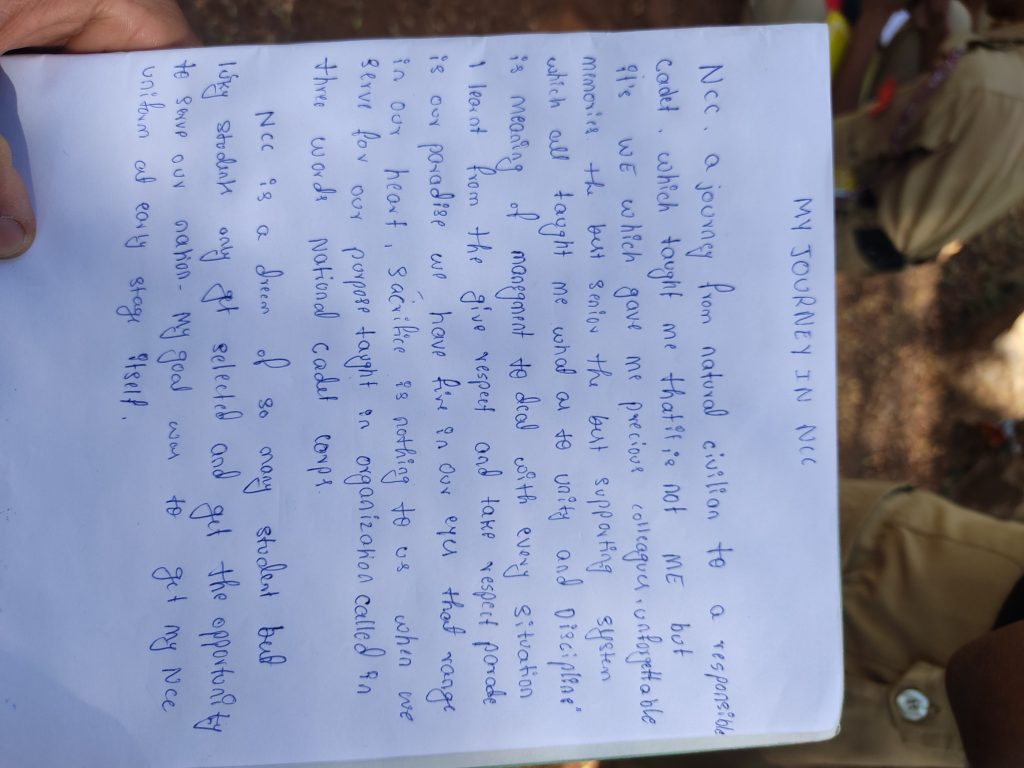 MY JOURNEY IN NCC
NCC, a journey from natural civilion to a responsible
Cadet, which taught me that it is not ME but
it's WE which gave me precious colleagues, unforgettable
memories. the best senior the best supporting system
which all taught me what as to unity and Discipline"
is meaning of manegment to deal with every situation
I leant from the give respect and take respect parade
is our paradise we have fire in our eyes that range
in our heart, sacrifice is nothing to us when we
serve for our purpose taught in organization called in
three words National Cadet Corps.
NCC is a dream of so many student but
luky students only get selected and get the opportunity
to serve our nation- My goal was to get my NCC
uniform at early stage itself.